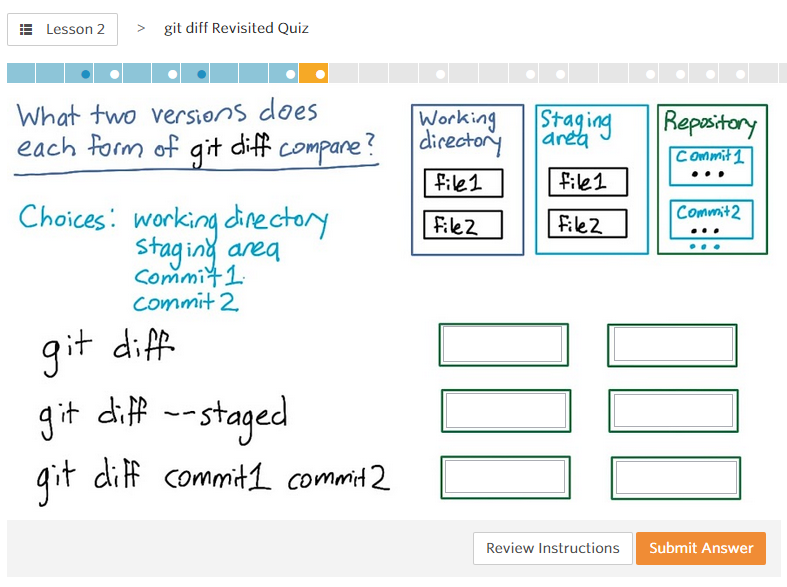 Lesson 2 > git diff Revisited Quiz
What two versions does
each form of git diff compare?
Choices: working directory
staging area
commit 1
commit 2
Working
directory
file1
file2
Staging
area
file1
file2
Repository
Commit1
...
Commit2
...
...
git diff
git diff --staged
git diff commit1 commit2
Review Instructions
Submit Answer